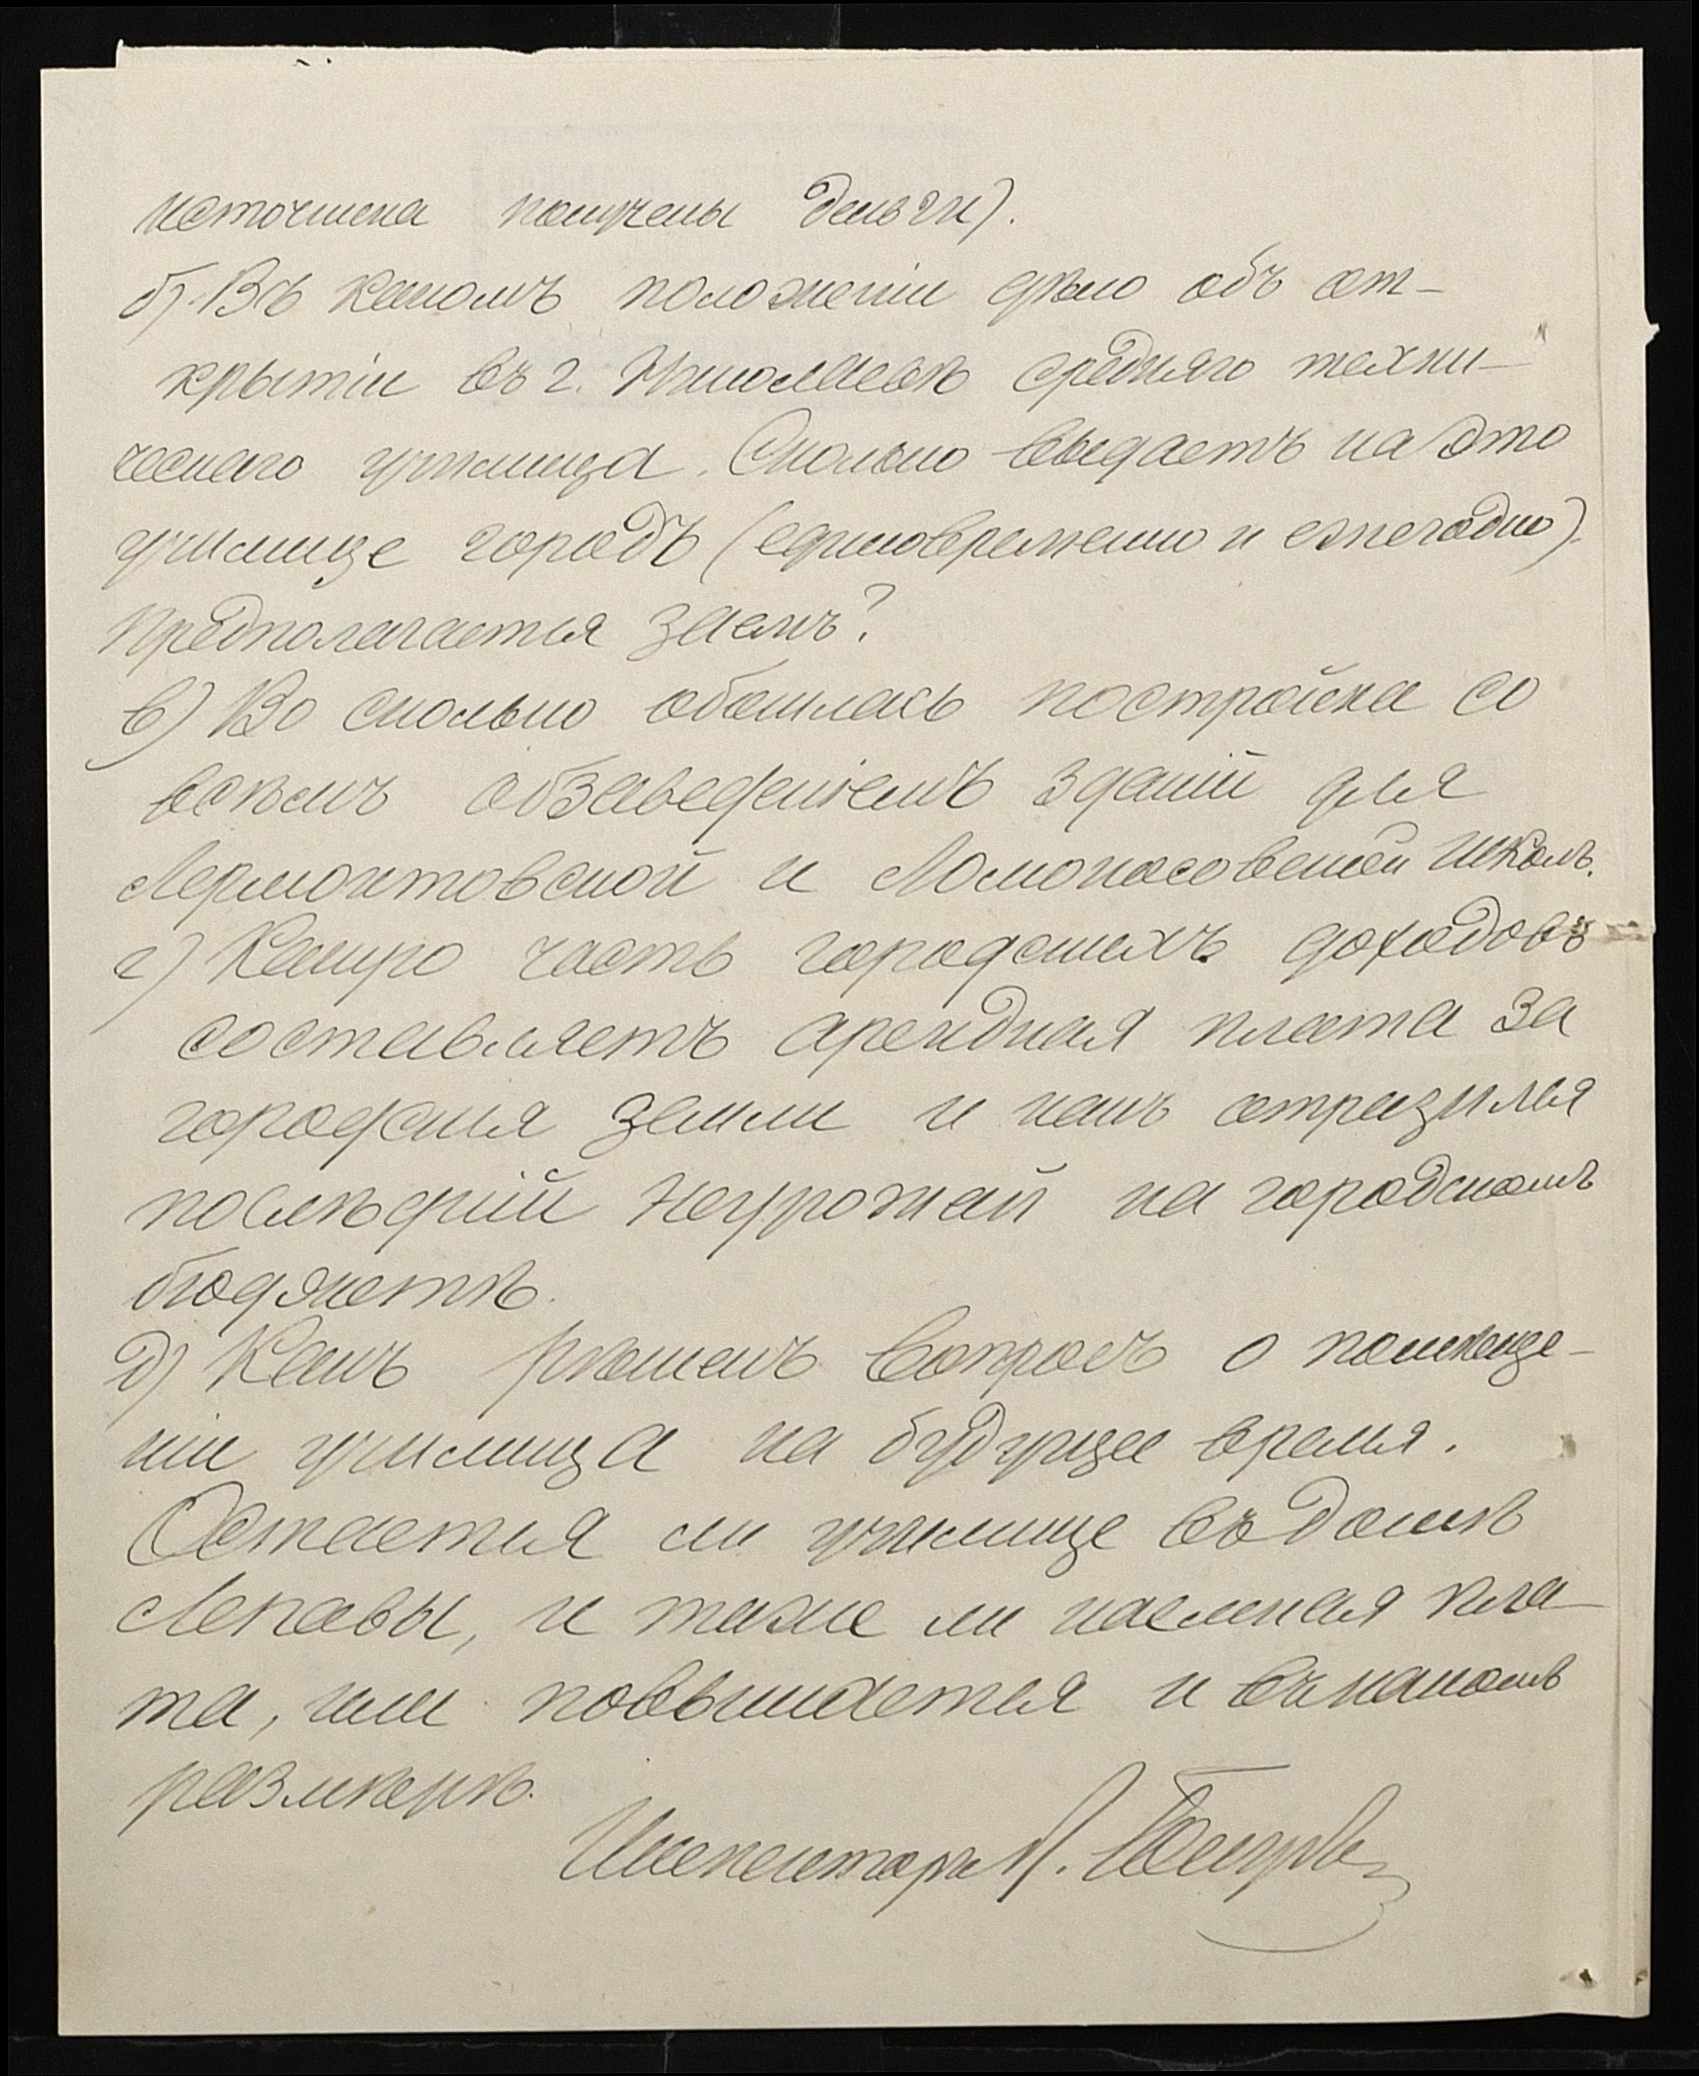 источника получены деньги).
б). Въ какомъ положеніи дѣло объ от-
крытіи въ г. Николаевѣ средняго техни-
ческаго училища. Сколько выдаетъ на это
училище городъ (единовременно и ежегодно).
Предполагается заемъ?
в) Во сколько обошлась постройка со
всѣмъ обзаведеніемъ зданій для
Лермонтовской и Ломоносовской школъ.
г) Какую часть городскихъ доходовъ
составляетъ арендная плата за
городскія земли и какъ отразился
послѣдній неурожай на городскомъ
бюджетѣ.
д) Какъ рѣшенъ вопросъ о помѣще-
ніи училища на будущее время.
Остается ли училище въ домѣ
Лепавы, и таже ли наемная пла-
та, или повышается и въ какомъ
размѣрѣ.
Инспекторъ